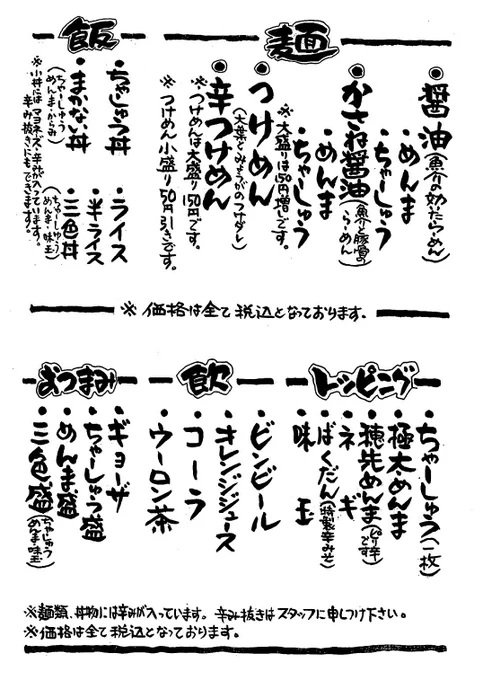 麺
◉醤油(魚介の効いたらーめん)
・めんま
・ちゃーしゅう
◉かさね醤油(魚介と豚骨のらーめん)
・めんま
・ちゃーしゅう
※大盛りは150円増しです。
◉つけめん
(大葉とみょうがのつけダレ)
◉辛つけめん
※つけめんは大盛り150円です。
※つけめん小盛り50円引きです。
飯
・ちゃしゅう丼
・ライス
・半ライス
・まかない丼
(ちゃーしゅうめんま・からみ)
・三色丼
(ちゃーしゅうめんま・味玉)
※小丼にはマヨネーズ・辛みが入っています。
辛み抜きにもできます。
※価格は全て税込となっております。
トッピング
・ちゃーしゅう(一枚)
・極太めんま
・穂先めんま(ピリ辛です)
・ネギ
・ばくだん(特製辛みそ)
・味玉
飲
・ビンビール
・オレンジジュース
・コーラ
・ウーロン茶
おつまみ
・ギョーザ
・ちゃーしゅう盛
・めんま盛
・三色盛(ちゃーしゅうめんま味玉)
※麺類、丼物には辛みが入っています。辛み抜きはスタッフに申しつけ下さい。
※価格は全て税込となっております。